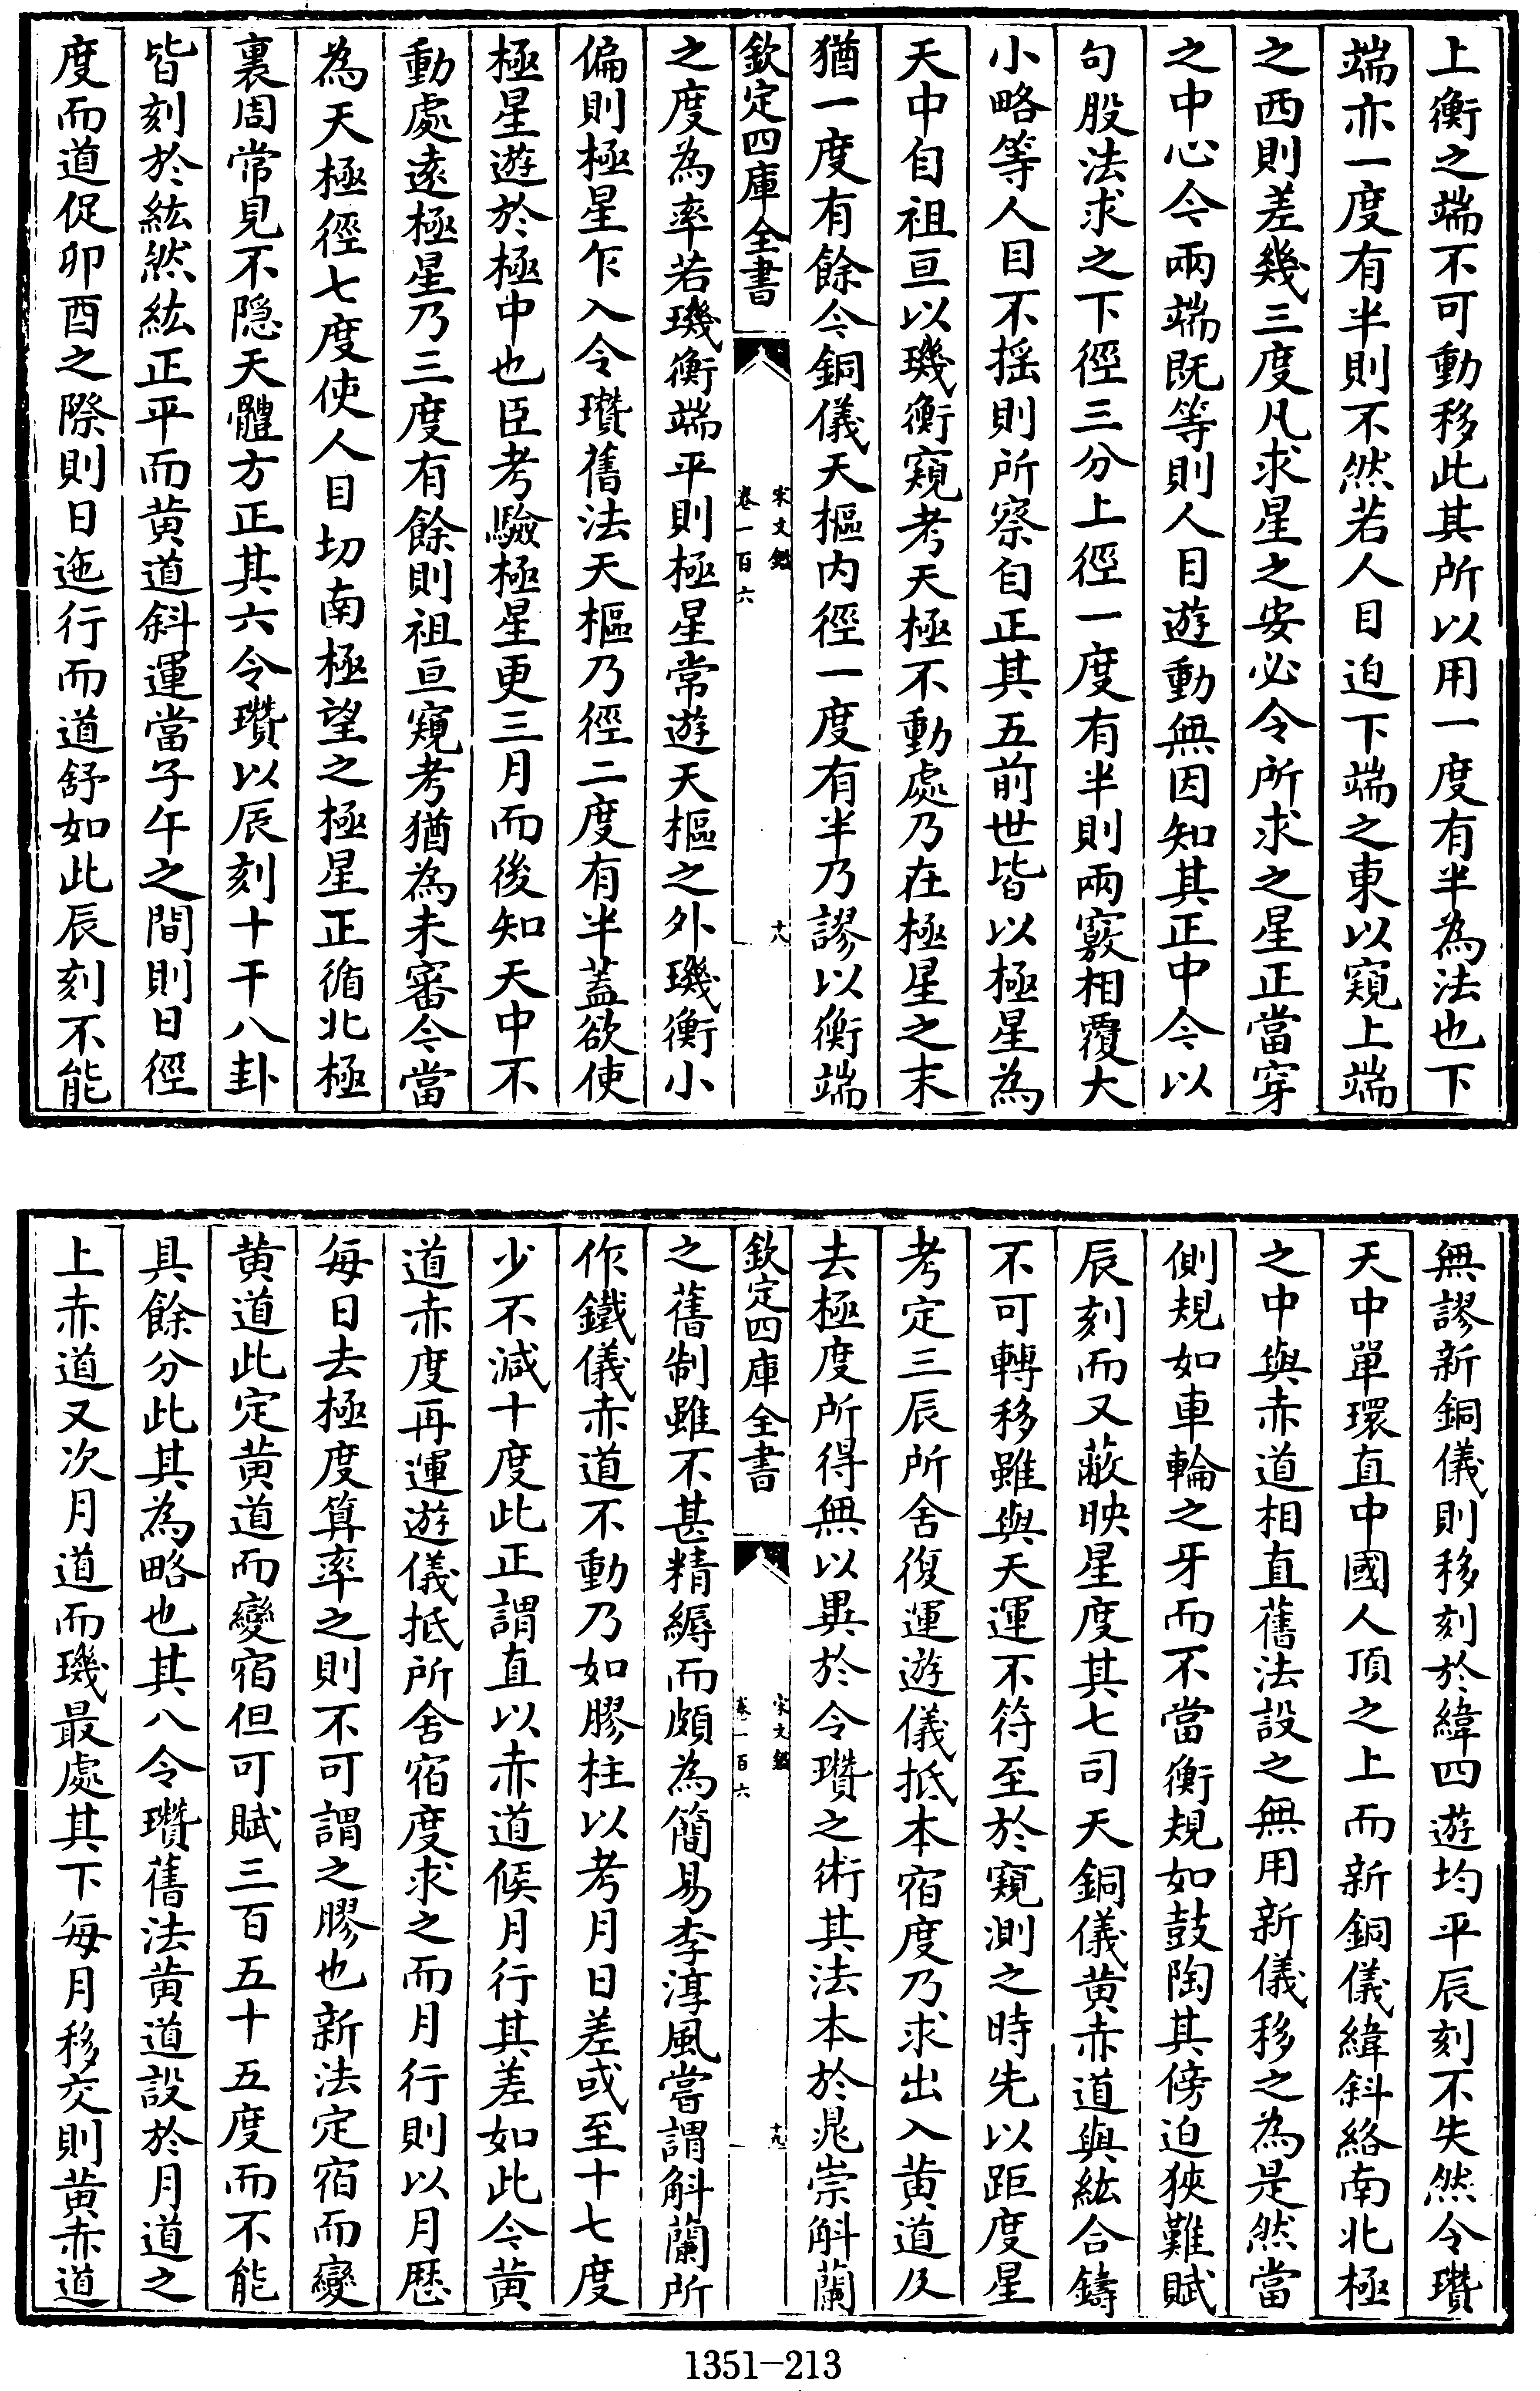 上衡之端不可動移此其所以用一度有半為法也下
端亦一度有半則不然若人目迫下端之東以窺上端
之西則差幾三度凡求星之安必令所求之星正當穿
之中心今兩端既等則人目遊動無因知其正中今以
句股法求之下徑三分上徑一度有半則兩竅相覆大
小略等人目不摇則所察自正其五前世皆以極星為
天中自祖亘以璣衡窺考天極不動處乃在極星之末
猶一度有餘今銅儀天樞内徑一度有半乃謬以衡端
欽定四庫全書
宋文鑑
卷一百六
十八
之度為率若璣衡端平則極星常遊天樞之外璣衡小
偏則極星乍入令瓚舊法天樞乃徑二度有半蓋欲使
極星遊於極中也臣考驗極星更三月而後知天中不
動處遠極星乃三度有餘則祖亘窺考猶為未審今當
為天極徑七度使人目切南極望之極星正循北極
裏周常見不隠天體方正其六令瓚以辰刻十干八卦
皆刻於紘然紘正平而黄道斜運當子午之間則日徑
度而道促卯酉之際則日迤行而道舒如此辰刻不能
無謬新銅儀則移刻於緯四遊均平辰刻不失然令瓚
天中單環直中國人頂之上而新銅儀緯斜絡南北極
之中與赤道相直舊法設之無用新儀移之為是然當
側規如車輪之牙而不當衡規如鼓陶其傍迫狹難賦
辰刻而又蔽映星度其七司天銅儀黄赤道與紘合鑄
不可轉移雖與天運不符至於窺測之時先以距度星
考定三辰所舍復運遊儀抵本宿度乃求出入黄道及
去極度所得無以異於令瓚之術其法本於晁崇斛蘭
欽定四庫全書
宋文鑑
卷一百六
十九
之舊制雖不甚精縟而頗為簡易李淳風嘗謂斛蘭所
作鐵儀赤道不動乃如膠柱以考月日差或至十七度
少不減十度此正謂直以赤道候月行其差如此今黄
道赤度再運遊儀抵所舍宿度求之而月行則以月厯
每日去極度算率之則不可謂之膠也新法定宿而變
黄道此定黄道而變宿但可賦三百五十五度而不能
具餘分此其為略也其八令瓚舊法黄道設於月道之
上赤道又次月道而璣最處其下每月移交則黄赤道
1351-213